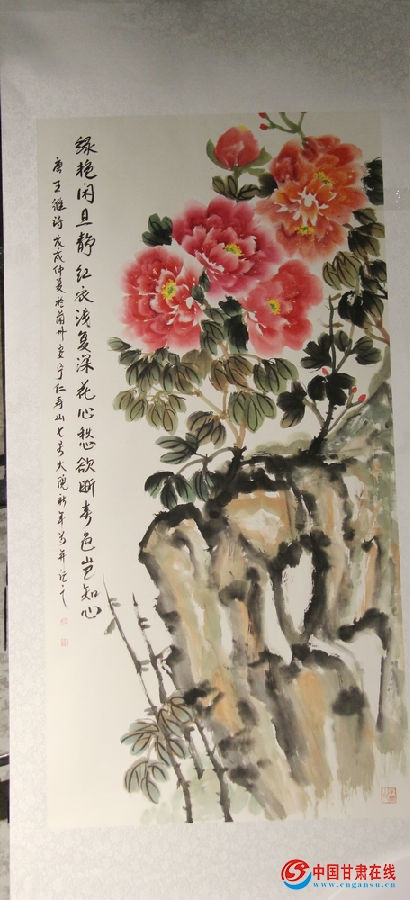 绿艳闲且静红衣浅复深花心愁欲断春色岂知心
唐王维诗戊戌仲夏於兰州安宁仁寿山七号大院新年写并记之
中国甘肃在线
www.cngansu.cn